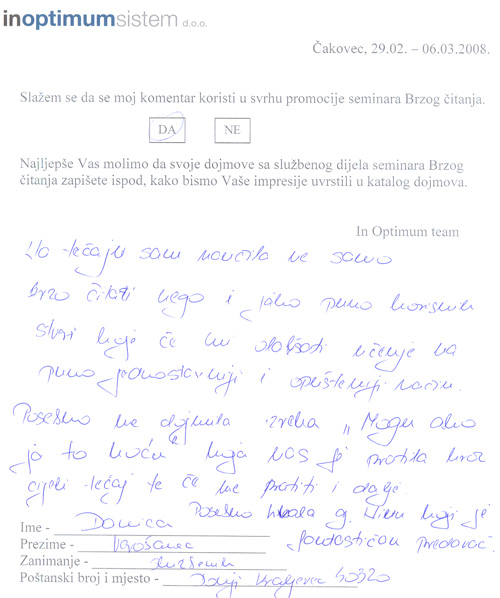 inoptimumsistem d.o.o.
Čakovec, 29.02. – 06.03.2008.
Slažem se da se moj komentar koristi u svrhu promocije seminara Brzog čitanja.
DA NE
Najljepše Vas molimo da svoje dojmove sa službenog dijela seminara Brzog
čitanja zapišete ispod, kako bismo Vaše impresije uvrstili u katalog dojmova.
In Optimum team
Na tečaju sam naučila ne samo
brzo čitati nego i jako puno korisnih
stvari koje će mi olakšati učenje na
puno jednostavniji i opušteniji način.
Posebno me dojmila izreka „Mogu ako
ja to hoću" koja nas je pratila kroz
cijeli tečaj te će me pratiti i dalje
Posebno hvala g. koji je
fantastičan predavač.
Ime - Danica
Prezime -
Zanimanje -
Poštanski broj i mjesto - Donji Kraljevec 40320